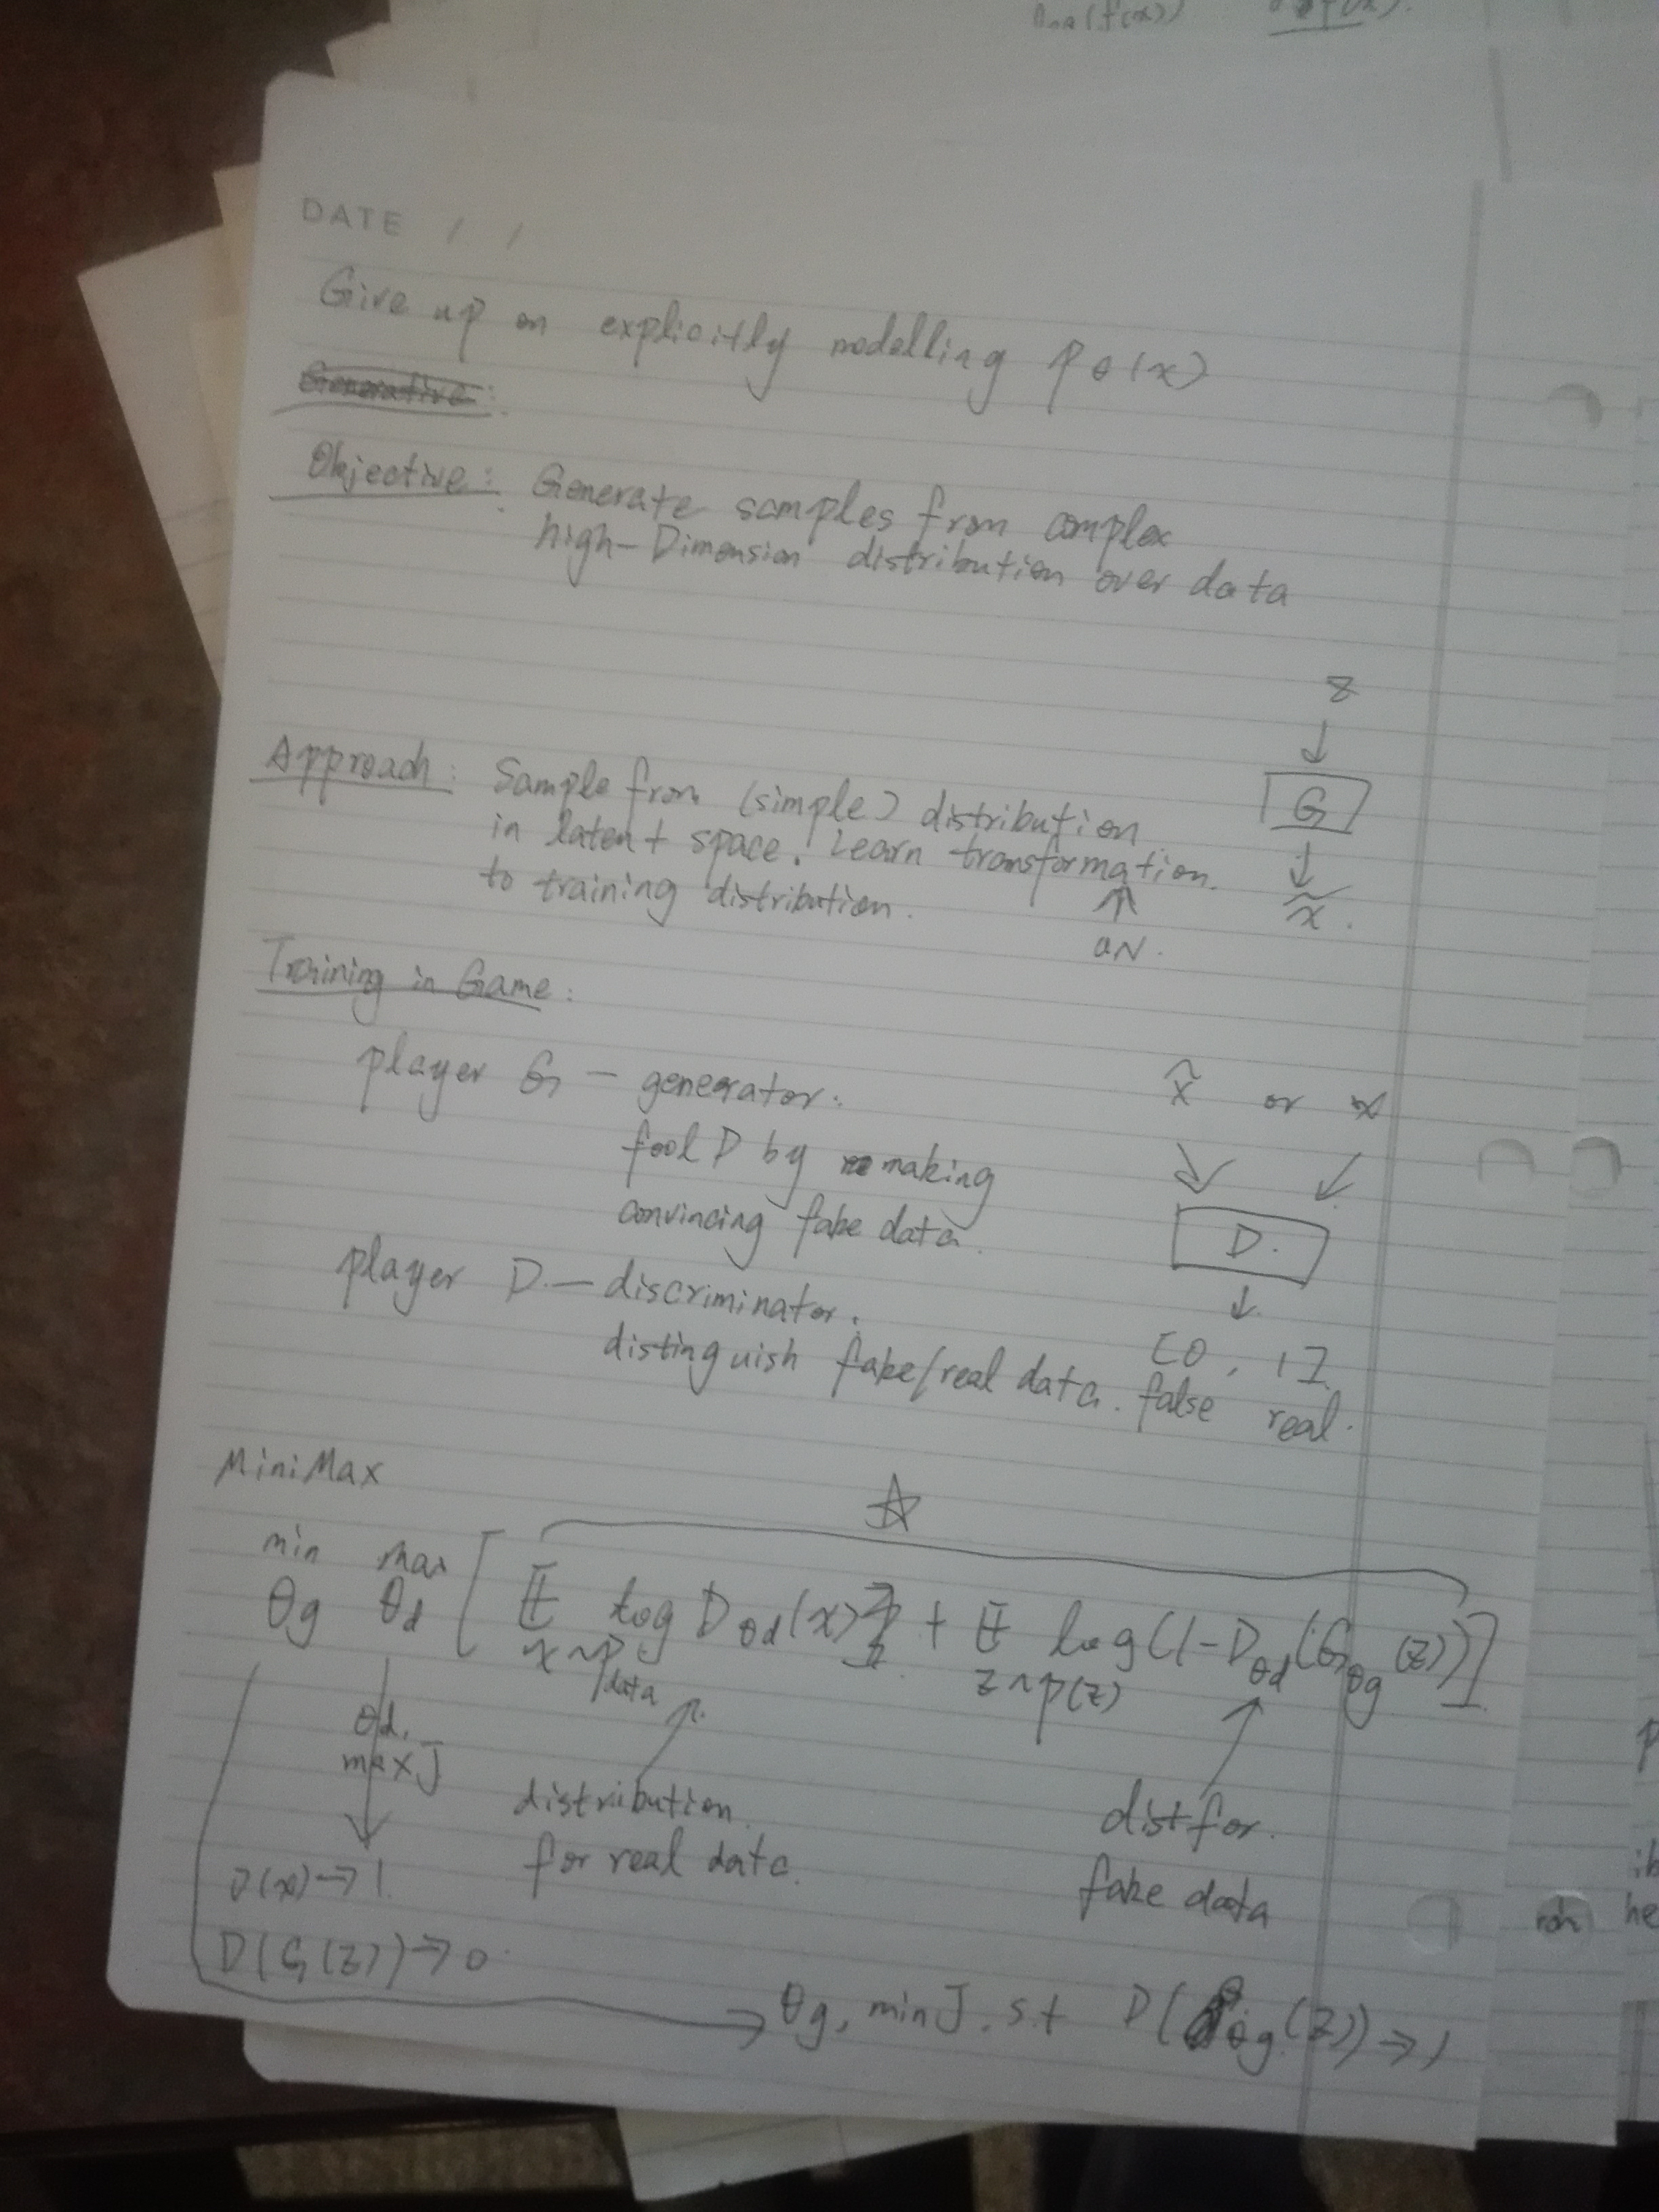 DATE / /
Give up on explicitly modelling pθ(x)
Generative:
Objective: Generate samples from complex
high-Dimension distribution over data
z
↓
G
↓
x̃.
Approach: Sample from (simple) distribution
in latent space. Learn transformation.
to training distribution.
↑
Training in Game:
player G – generator.
fool D by making
convincing fake data.
x̃ or x
D.
↓
player D. – discriminator.
distinguish fake/real data.
[0, 1]
false real.
MiniMax
☆
min θg max θd [ 𝔼 x~p data log Dθd(x) + 𝔼 z~p(z) log(1-Dθd(Gθg(z))]
θd.
max J
distribution
for real data.
dist for.
fake data
D(x)→1.
D(G(z))→0
→ θg, min J. s.t D( θg(z))→1